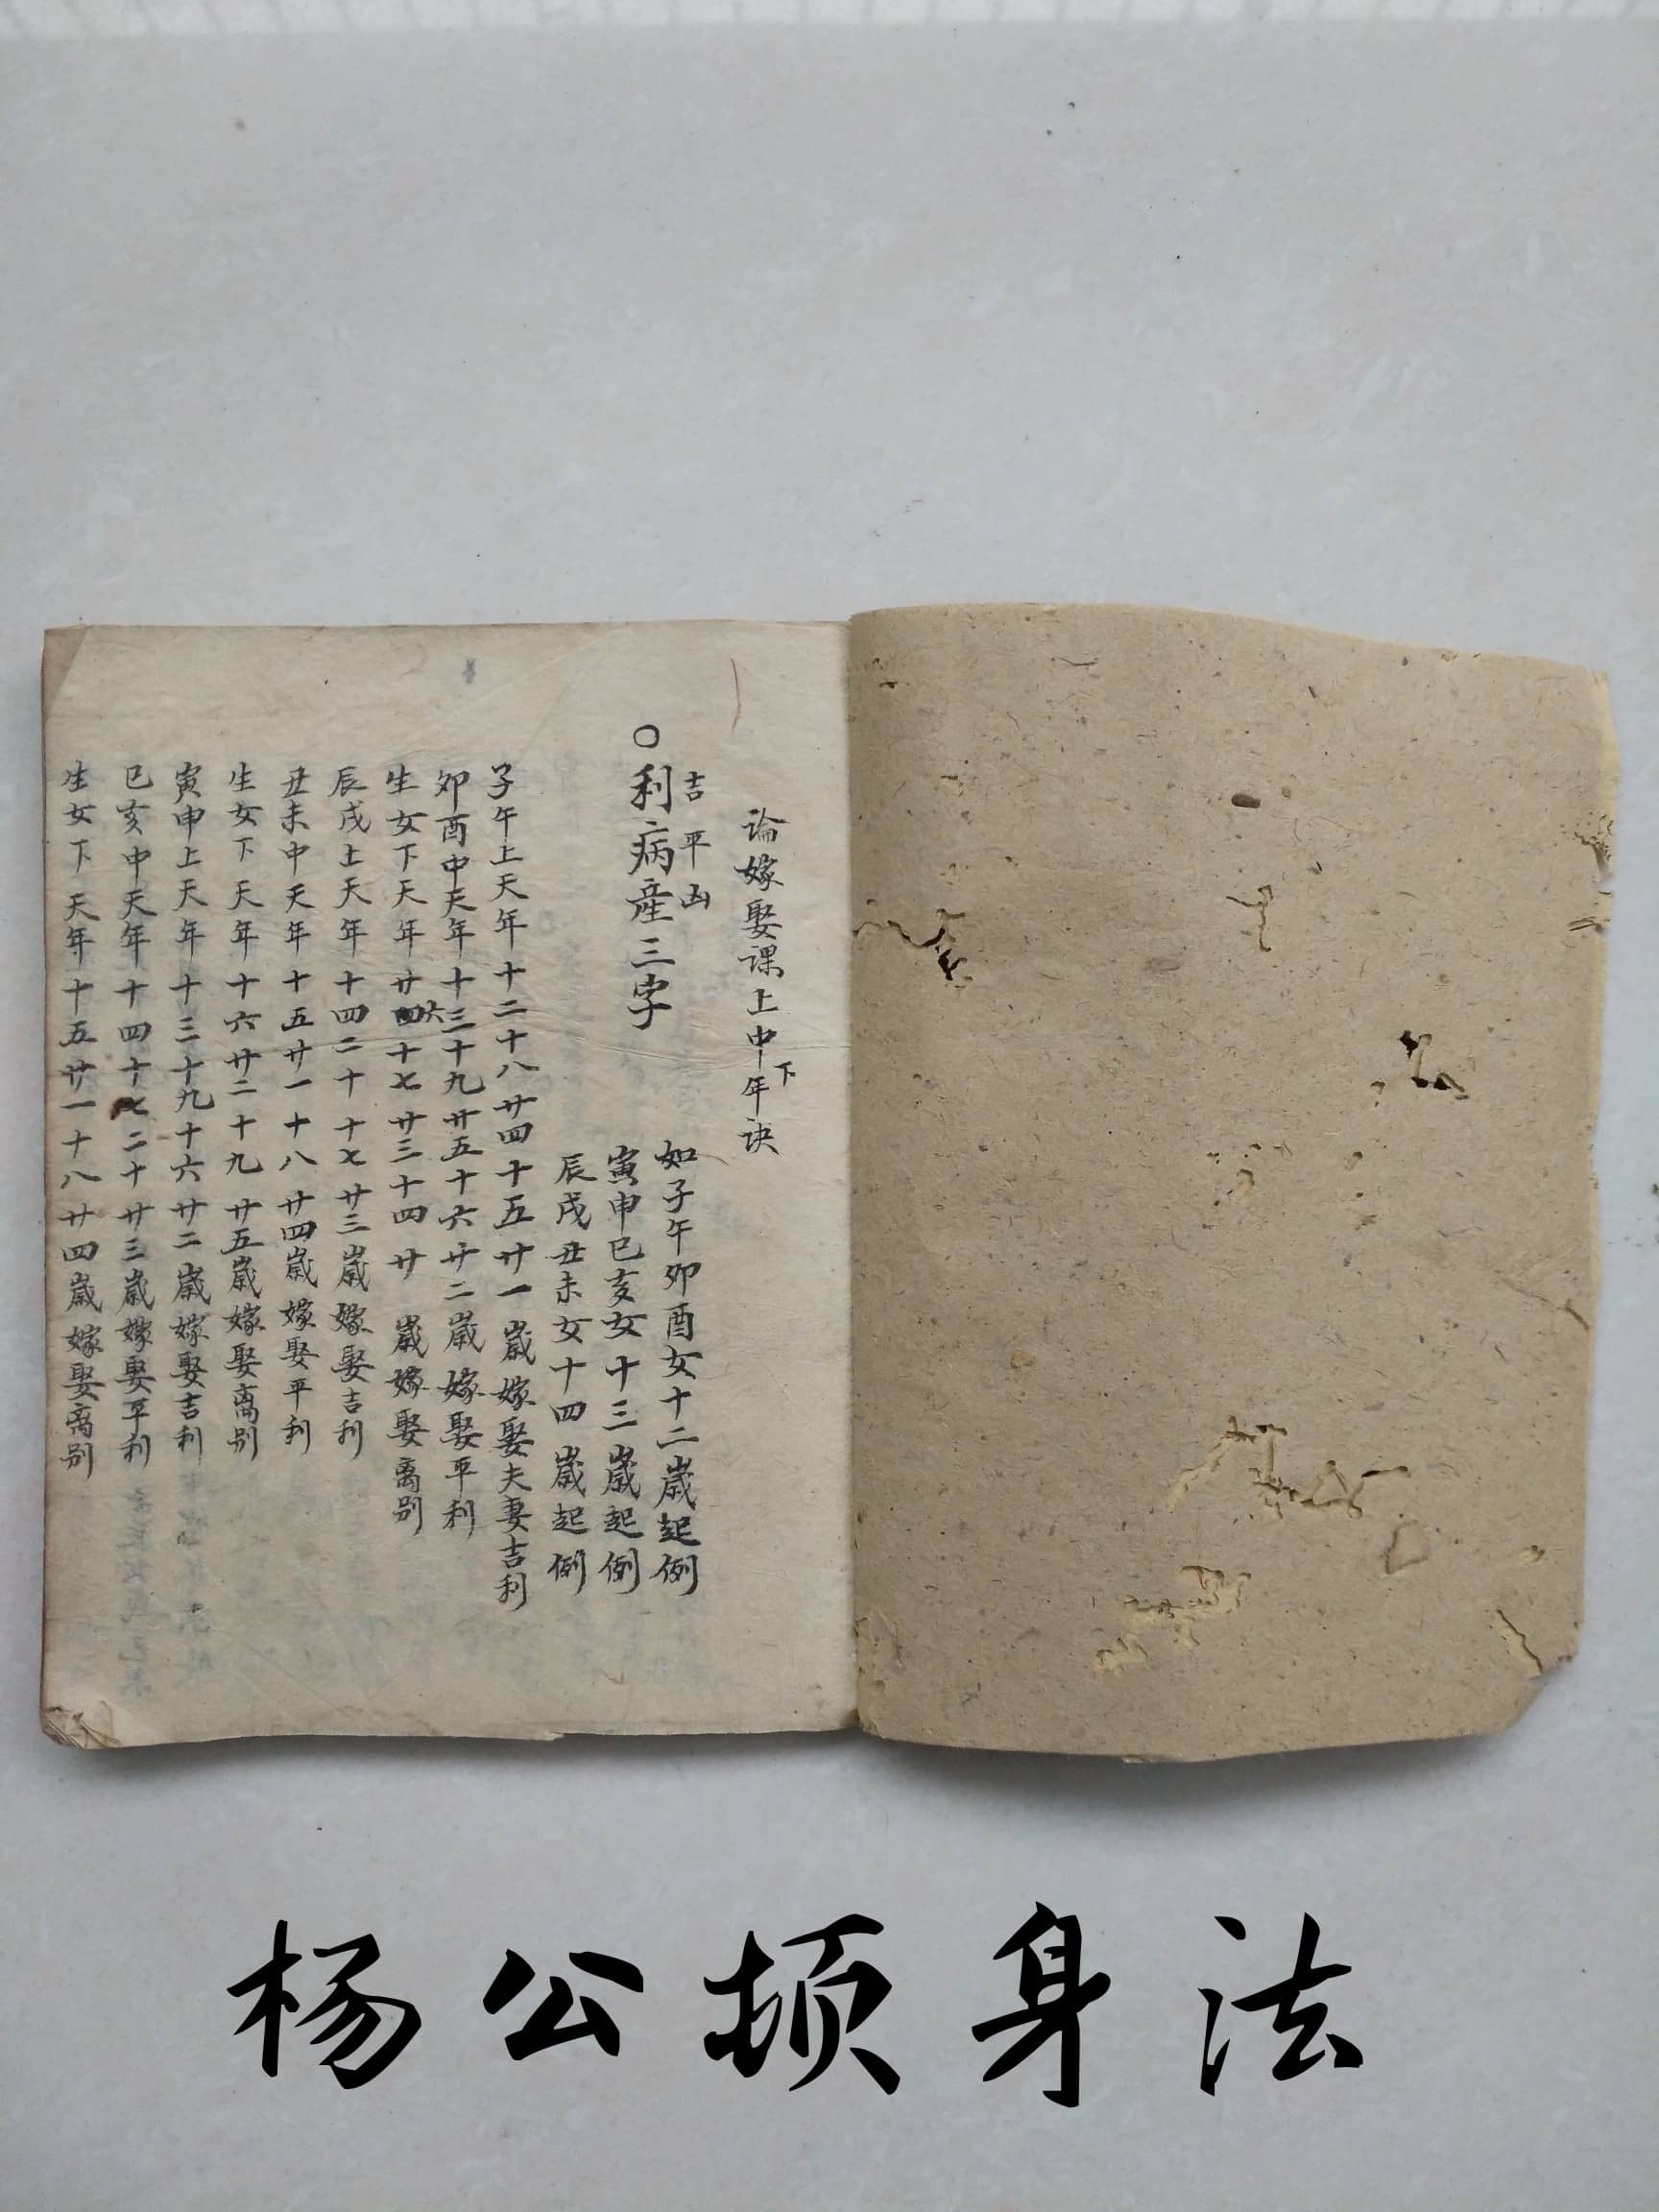 論嫁娶課上中下年訣
吉平凶
○利病産三字
如子午卯酉女十二歳起例
寅申巳亥女十三歳起例
辰戌丑未女十四歳起例
子午上天年十二十八廿四十五廿一歳嫁娶夫妻吉利
卯酉中天年十三十九廿五十六廿二歳嫁娶平利
生女下天年廿六十七廿三十四廿歳嫁娶离别
辰戌上天年十四二十十七廿三歳嫁娶吉利
丑未中天年十五廿一十八廿四歳嫁娶平利
生女下天年十六廿二十九廿五歳嫁娶离别
寅申上天年十三十九十六廿二歳嫁娶吉利
巳亥中天年十四十七二十廿三歳嫁娶平利
生女下天年十五廿一十八廿四歳嫁娶离别
杨公顿身法